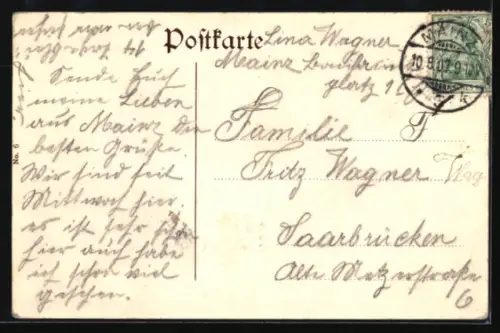 Postkarte
Lina Wagner
Mainz
platz 1
MAINZ
10.8.07.9-10V.
Sende Euch
meine Lieben
aus Mainz die
besten Grüße.
Wir sind seit
Mittwoch hier.
es ist sehr schön
hier auch habe
ich schon viel
gesehen.
Familie F
Fritz Wagner Wag
Saarbrücken
Alte Metzerstraße
6
No. 6